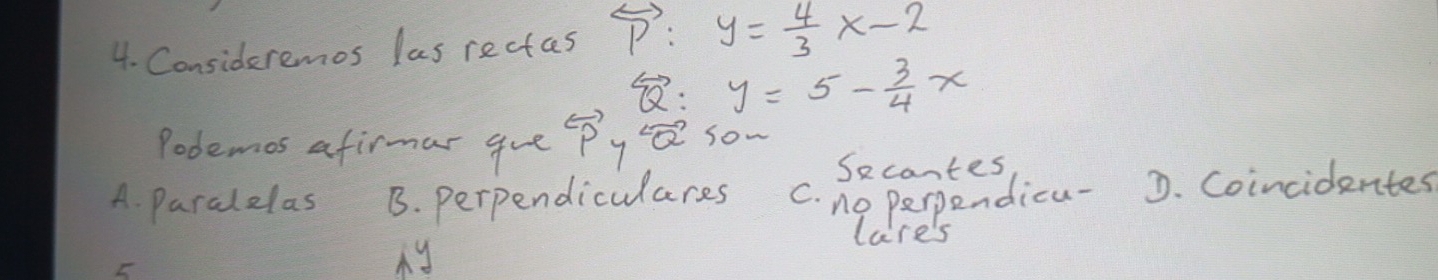 4. Consideremos las rectas P⃡: y = 4/3 x - 2
Q⃡: y = 5 - 3/4 x
Podemos afirmar que P⃡ y Q⃡ son
A. Paralelas B. Perpendiculares C. Secantes, no perpendicu-lares D. Coincidentes
5
y